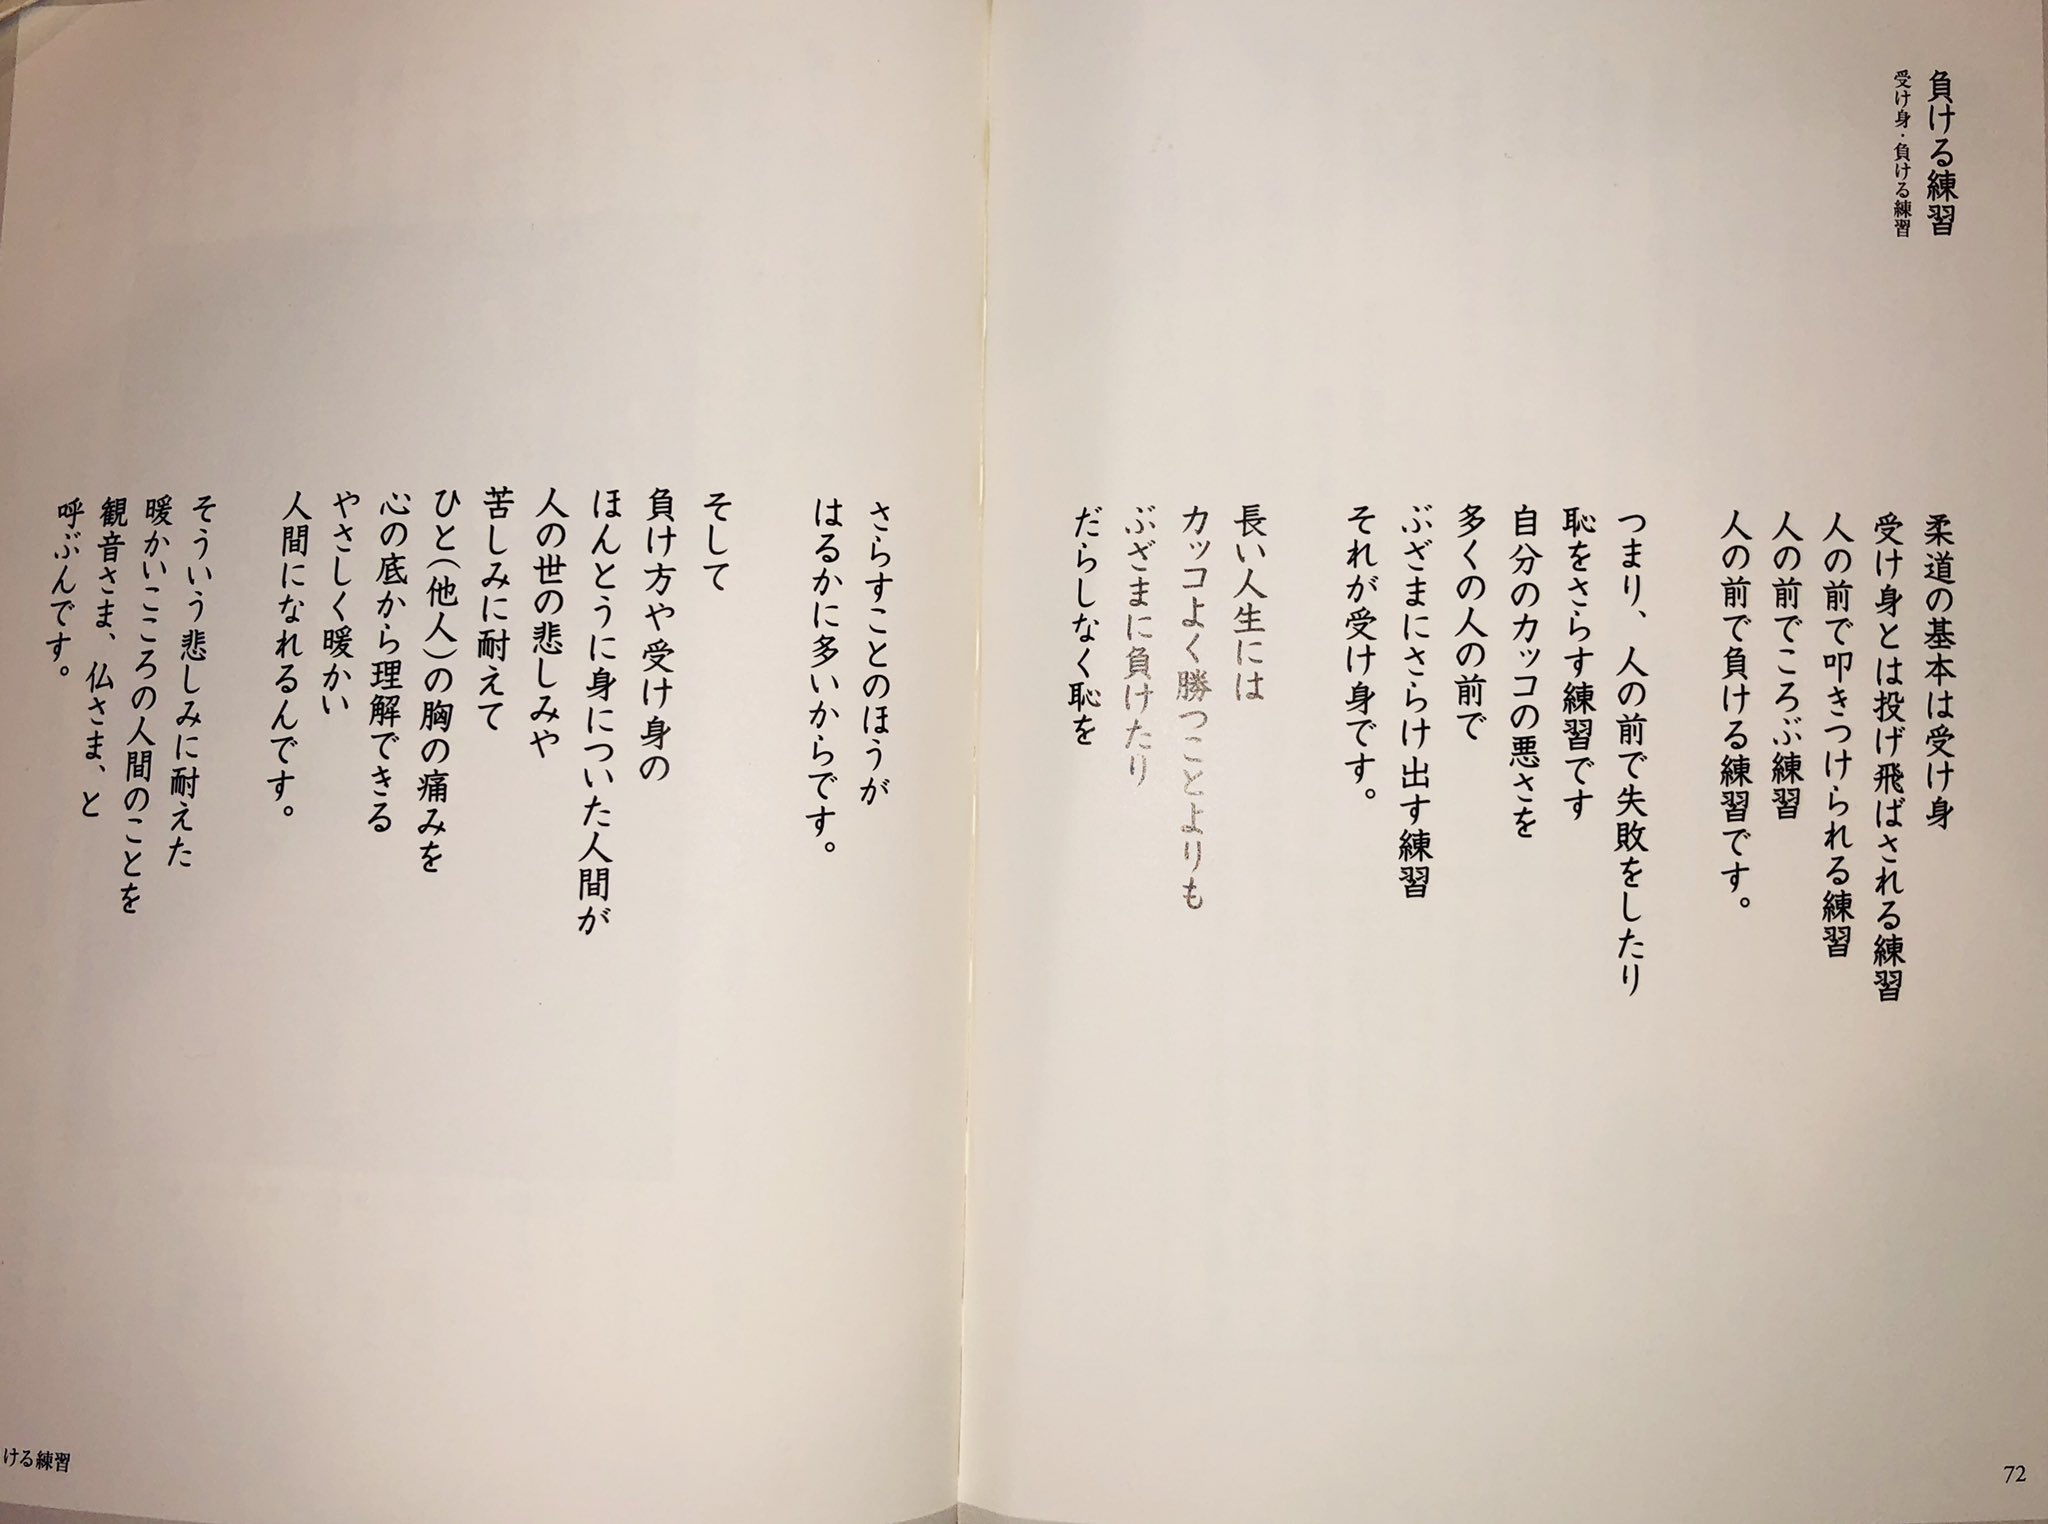 負ける練習
受け身・負ける練習
柔道の基本は受け身
受け身とは投げ飛ばされる練習
人の前で叩きつけられる練習
人の前でころぶ練習
人の前で負ける練習です。
つまり、人の前で失敗をしたり
恥をさらす練習です
自分のカッコの悪さを
多くの人の前で
ぶざまにさらけ出す練習
それが受け身です。
長い人生には
カッコよく勝つことよりも
ぶざまに負けたり
だらしなく恥を
さらすことのほうが
はるかに多いからです。
そして
負け方や受け身の
ほんとうに身についた人間が
人の世の悲しみや
苦しみに耐えて
ひと(他人)の胸の痛みを
心の底から理解できる
やさしく暖かい
人間になれるんです。
そういう悲しみに耐えた
暖かいこころの人間のことを
観音さま、仏さま、と
呼ぶんです。
72
ける練習